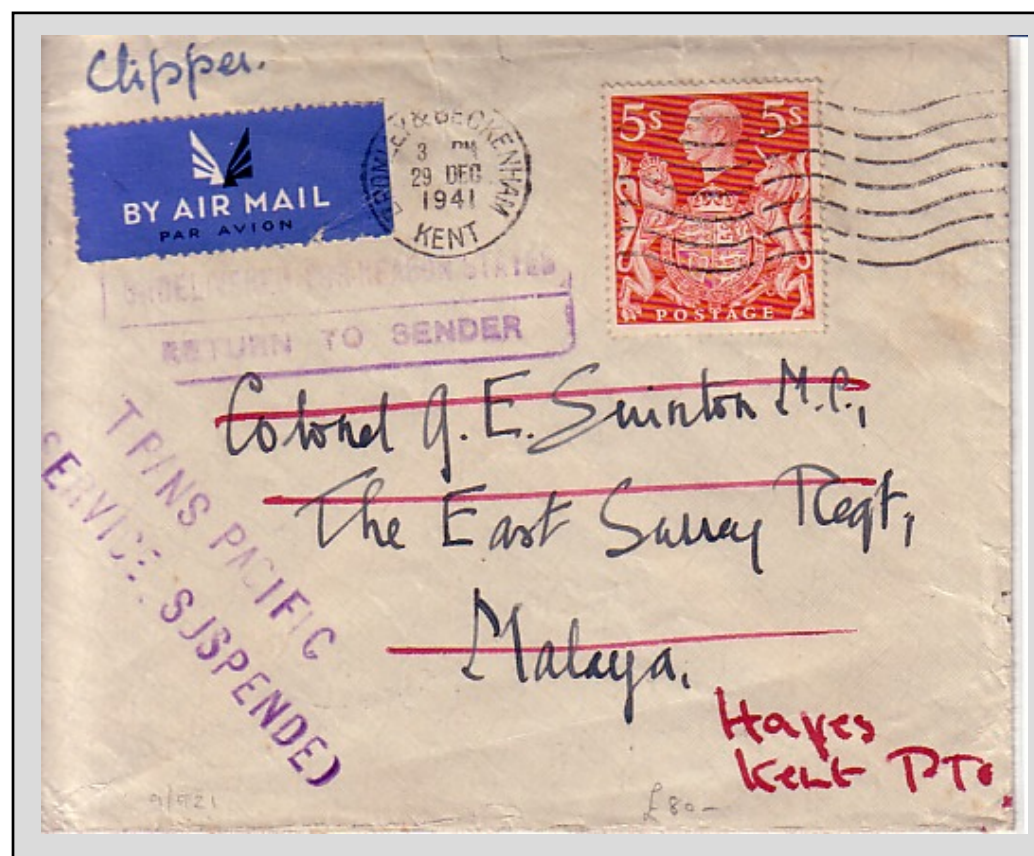 Clipper.
BY AIR MAIL
PAR AVION
BROMLEY & BECKENHAM
3 PM
29 DEC
1941
KENT
5s 5s
POSTAGE
UNDELIVERED FOR REASON STATED
RETURN TO SENDER
TRANS PACIFIC
SERVICE SUSPENDED
Colonel G. E. Swinton M.C.,
The East Surrey Regt,
Malaya.
Hayes
Kent PTO
£80-